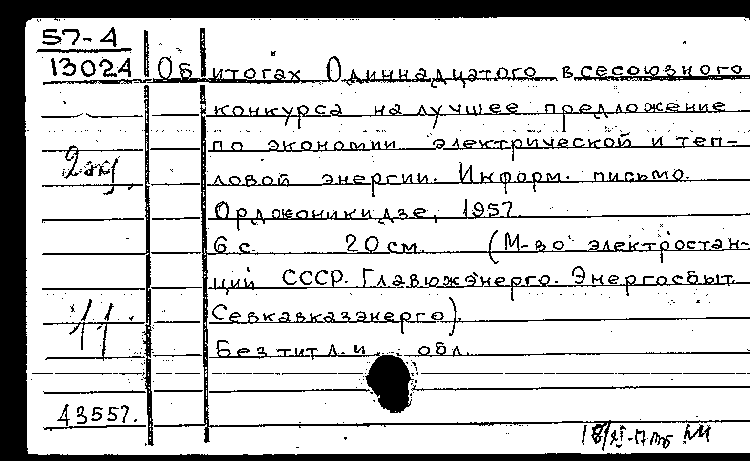 57-4
13024 Об итогах Одиннадцатого всесоюзного
конкурса на лучшее предложение
по экономии электрической и теп-
2жд.
ловой энергии. Информ. письмо.
Орджоникидзе, 1957.
6 с. 20 см. (М-во электростан-
ций СССР. Главюжэнерго. Энергосбыт
Севкавказэнерго).
11
Без тит. л. и обл.
43557.